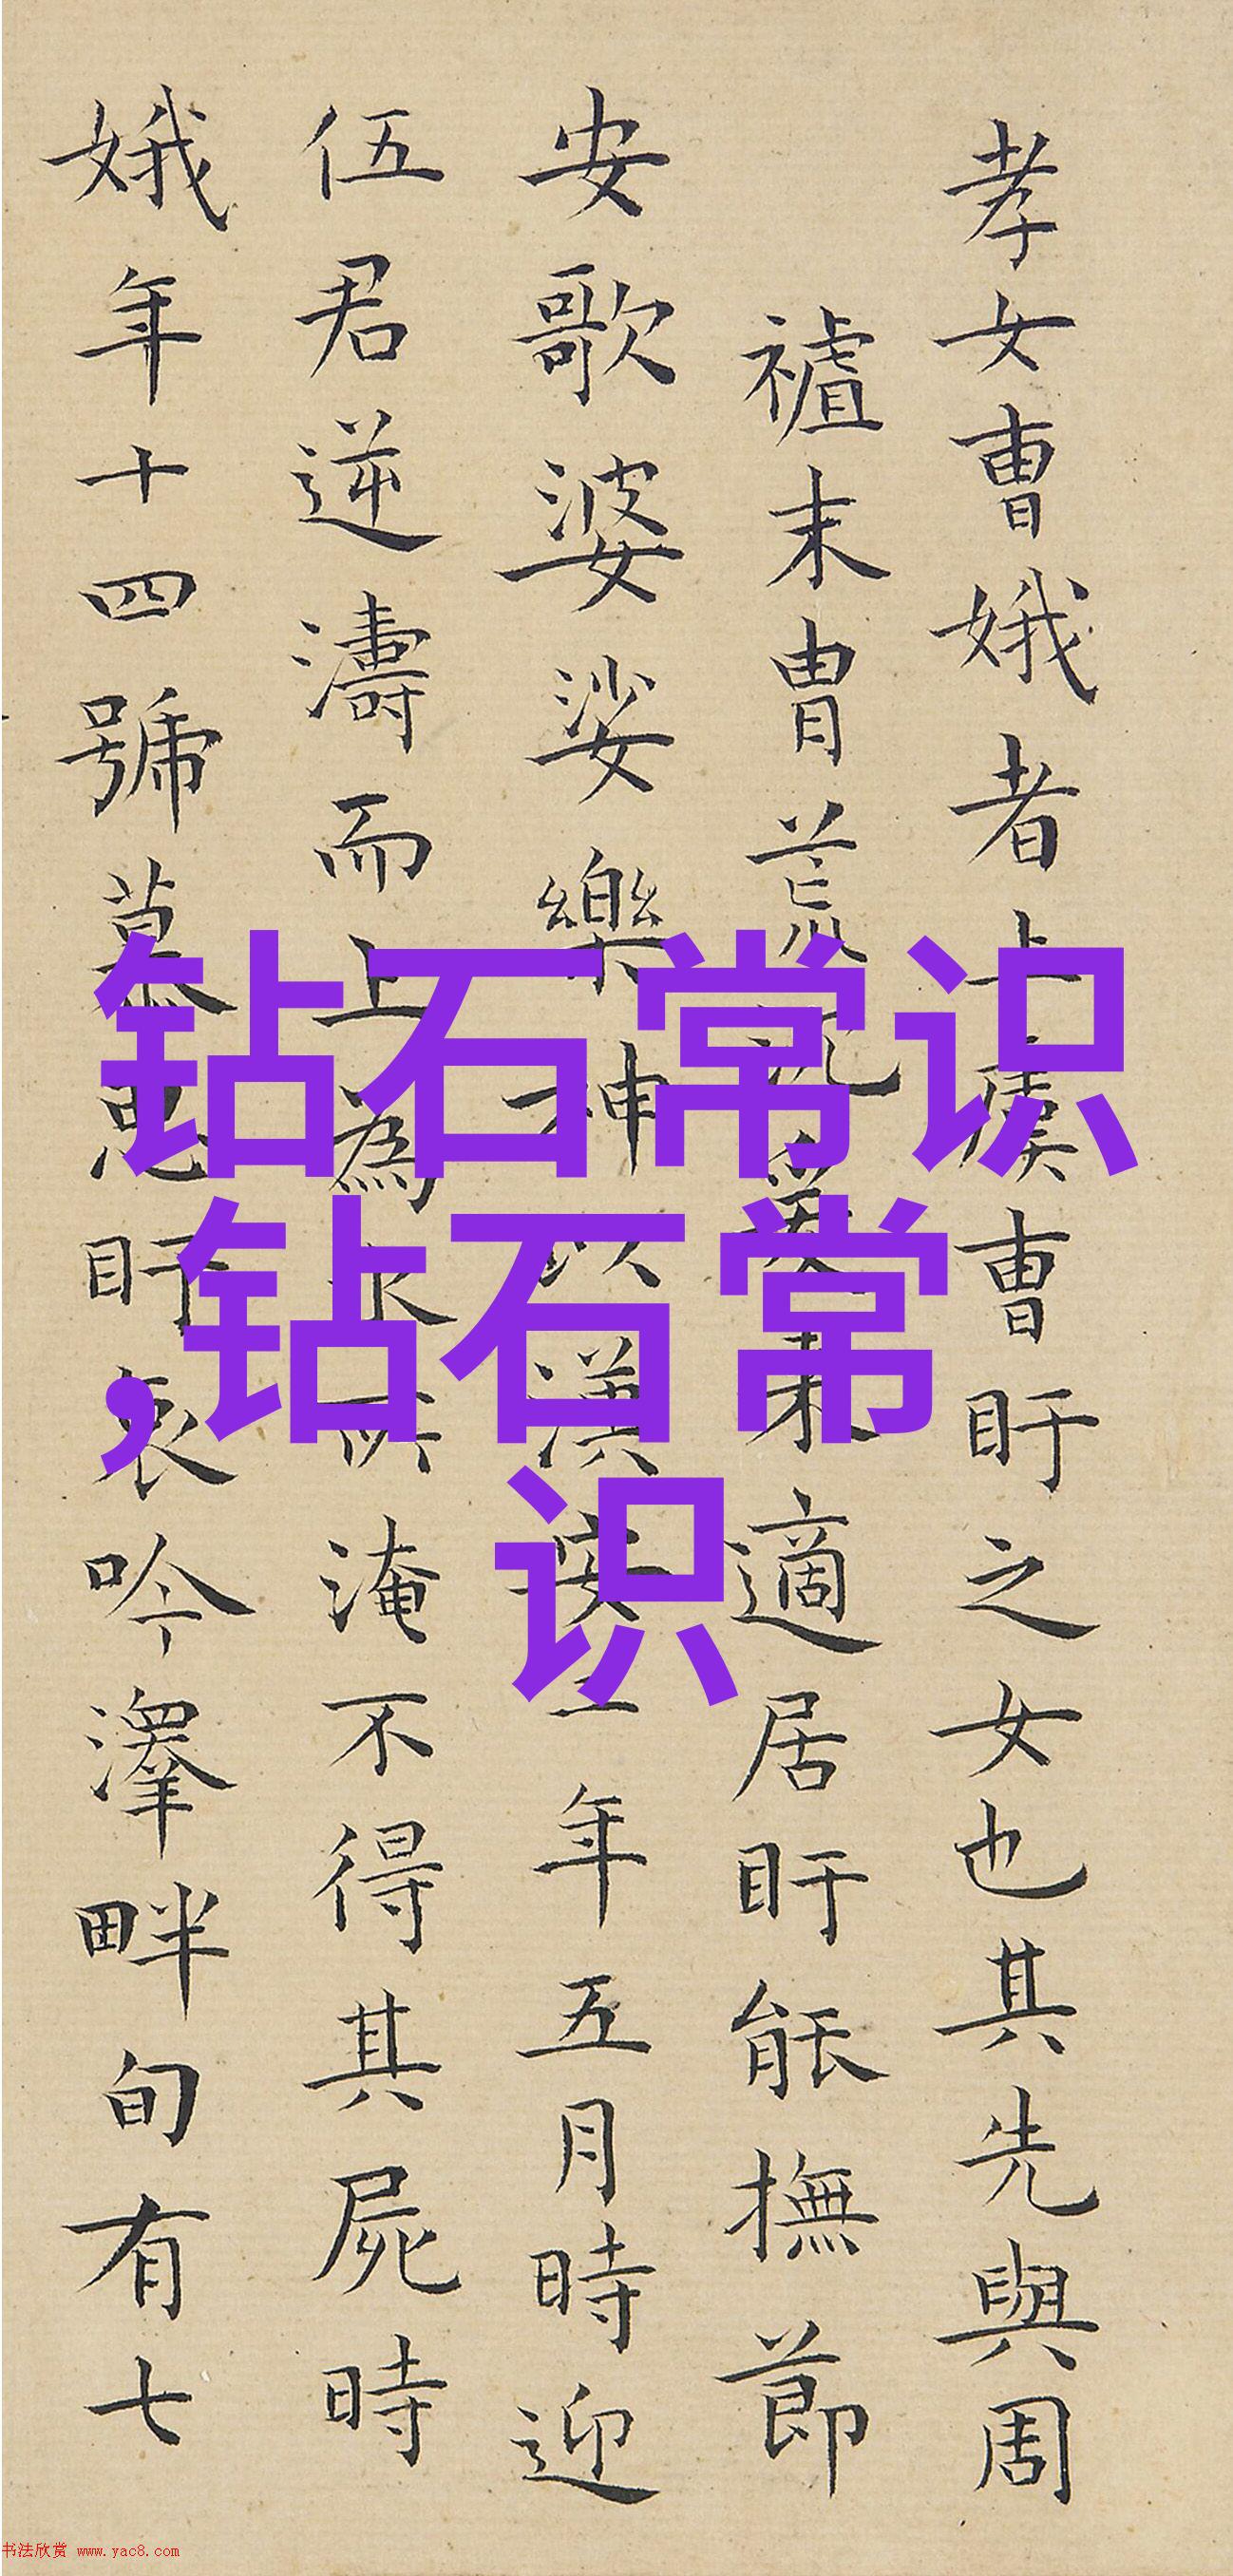 孝女曹娥者上虞曹盱之女也其先與周
末胄荒沉爰來適居盱能撫節
安歌婆娑樂神以漢安二年五月時迎
伍君逆濤而上為水所淹不得其屍時
娥年十四號慕思盱哀吟澤畔旬有七
钻石常识
,钻石常
识
书法欣赏 www.yac8.com